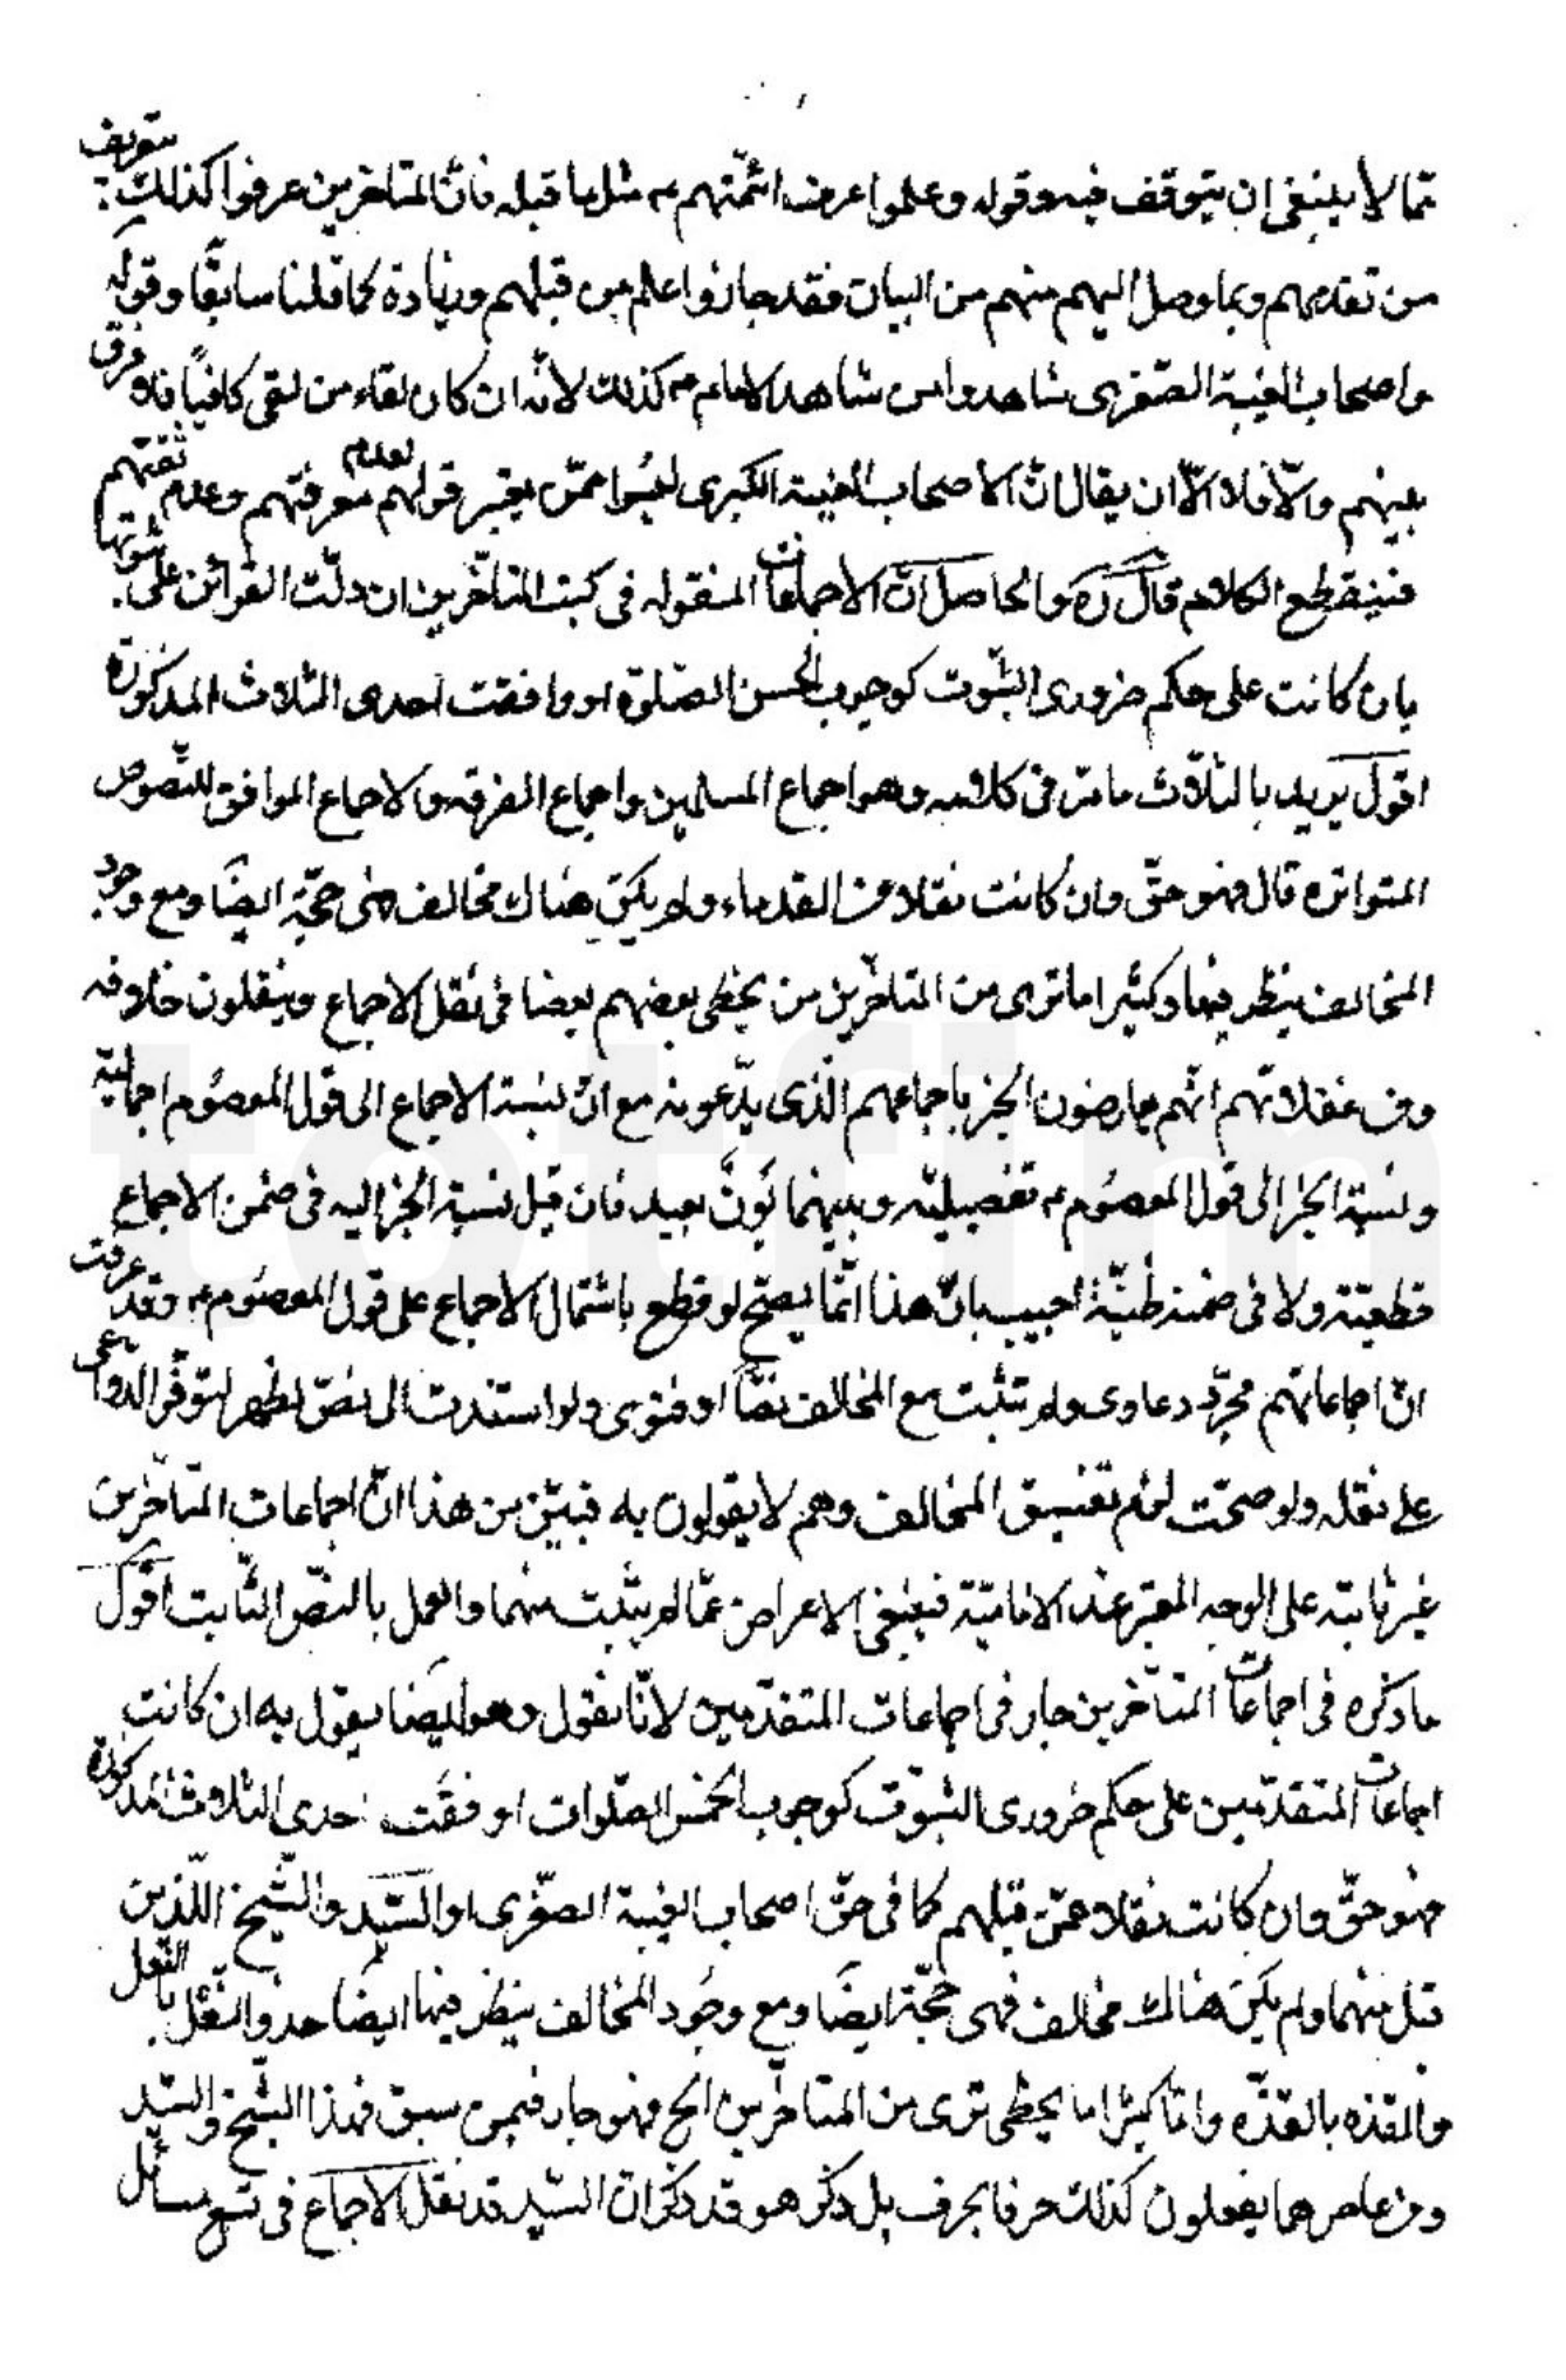 مما لا ينبغى ان يتوقف فيه وقوله وعلموا عرف ائمّتهم ع مثل ما قبله فانّ المتاخرين عرفوا كذلك بتعريف
من تقدمهم وبما وصل اليهم منهم من البيان فقد جازوا علم من قبلهم وزيادة كما قلنا سابقًا وقوله
واصحاب الغيبة الصّغرى شاهدوا من شاهد الامام ع كذلك لانّه ان كان لقاء من لقى كافيًا فلا فرق
بينهم والّا فلا الّا ان يقال انّ الاصحاب الغيبة الكبرى ليسُوا ممّن يعتبر قولهم لعدم معرفتهم وعدم ثقتهم
فينقطع الكلام قال ره والحاصل انّ الاجماعات المنقوله فى كتب المتاخّرين ان دلّت القرائن على ثبوتها
بان كانت على حكم ضرورى الثّبوت كوجوب الخمس الصّلوة او وافقت احدى الثلاث المذكورة
اقول يريد بالثلاث ما مرّ فى كلامه وهو اجماع المسلمين واجماع الفرقه والاجماع الموافق للنّصوص
المتواتره قال فهو حقّ وان كانت نقلا عن القدماء ولم يكن هناك مخالف فهى حجّة ايضًا ومع وجود
المخالف ينظر فيها وكثيرا ما ترى من المتاخّرين من يخطى بعضهم بعضا فى نقل الاجماع وينقلون خلافه
ومن غفلاتهم انّهم يعارضون الخبر باجماعهم الّذى يدّعونه مع انّ نسبة الاجماع الى قول المعصُوم اجماليّة
ونسبة الخبر الى قول المعصُوم ع تفصيليّه وبينهما بَونٌ بعيد فان قيل نسبة الخبر اليه فى ضمن الاجماع
قطعيّة ولا فى ضمنه ظنيّة اجيب بانّ هذا انّما يصحّ لو قطع باشتمال الاجماع على قول المعصُوم ع وقد عرفت
انّ اجماعاتهم مجرّد دعاوى ولم تثبت مع المخالف نصًّا او فتوى ولو استندت الى نصّ لظهر لتوفّر الدواعى
على نقله ولو صحّت لزم تفسيق المخالف وهم لا يقولون به فتبيّن من هذا انّ اجماعات المتاخّرين
غير ثابتة على الوجه المعتبر عند الاماميّة فينبغى الاعراض عمّا لم يثبت منهما والعمل بالنّصّ الثّابت اقول
ما ذكره فى اجماعات المتاخّرين جار فى اجماعات المتقدّمين لانّا نقول وهو ايضا يقول به ان كانت
اجماعات المتقدّمين على حكم ضرورى الثبّوت كوجوب الخمس الصّلوات او فقَت احدى الثلاث المذكورة
فهو حقّ وان كانت نقلا عمّن قبلهم كما فى حقّ اصحاب الغيبة الصّغرى او السّيّد والشّيخ اللّذين
قبل منهما ولم يكن هناك مخالف فهى حجّة ايضًا ومع وجُود المخالف ينظر فيها ايضًا حذو النّعل بالنّعل
والقذه بالقذّه وامّا كثيرا ما يخطى ترى من المتاخّرين الخ فهو جار فيمن سبق فهذا الشّيخ والسّيّد
ومن عاصرهما يفعلون كذلك حرفا بحرف بل ذكر هو قد ذكر انّ السّيّد قد نقل الاجماع فى تسع مسائل